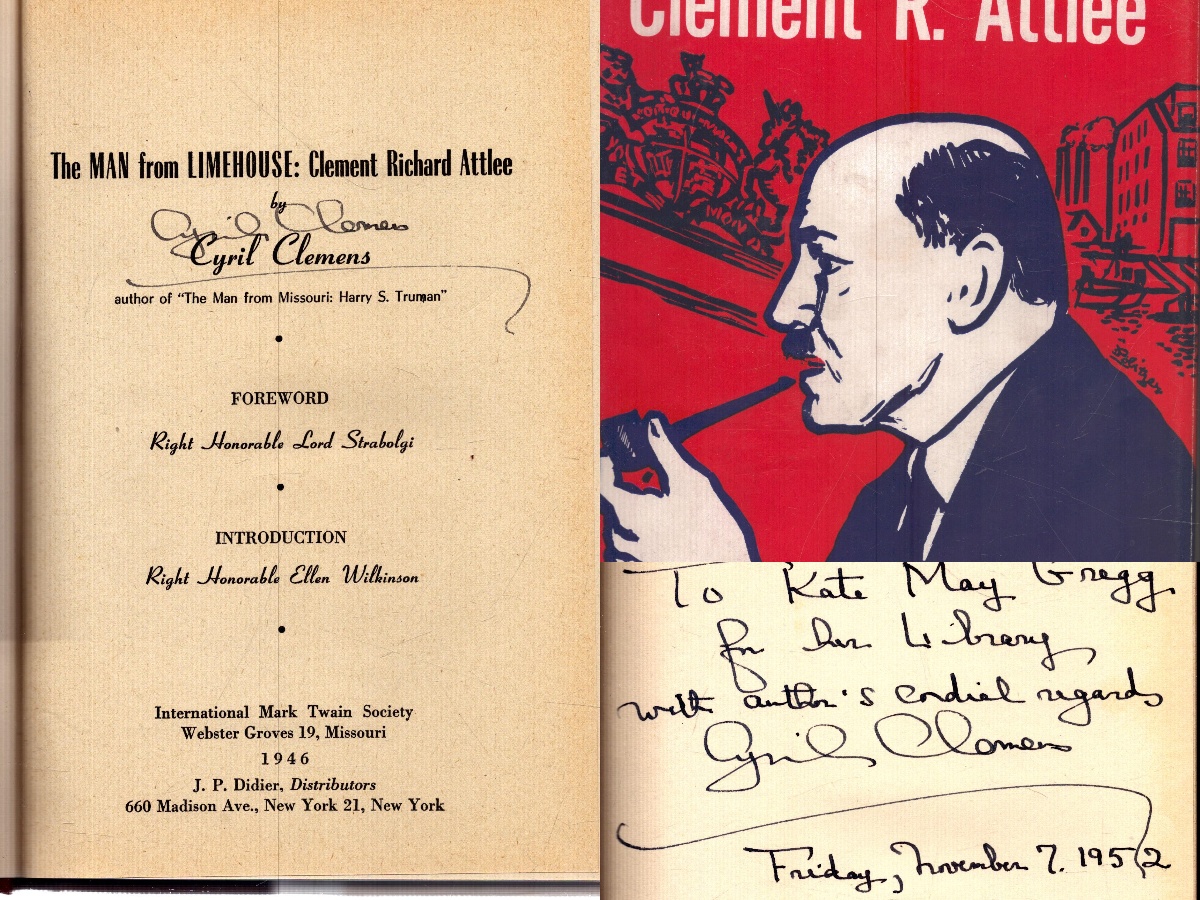 The MAN from LIMEHOUSE: Clement Richard Attlee
by
Cyril Clemens
Cyril Clemens
author of "The Man from Missouri: Harry S. Truman"
FOREWORD
Right Honorable Lord Strabolgi
INTRODUCTION
Right Honorable Ellen Wilkinson
International Mark Twain Society
Webster Groves 19, Missouri
1946
J. P. Didier, Distributors
660 Madison Ave., New York 21, New York
Clement R. Attlee
To Kate May Gregg
for her Library
with author's cordial regards
Cyril Clemens
Friday, November 7. 1952